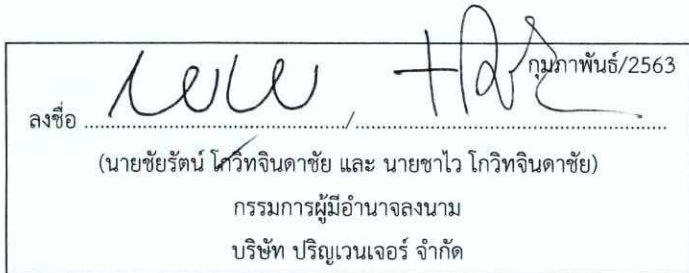 กุมภาพันธ์/2563
ลงชื่อ ............................................./.....................................................
(นายชัยรัตน์ โกวิทจินดาชัย และ นายชาไว โกวิทจินดาชัย)
กรรมการผู้มีอำนาจลงนาม
บริษัท ปริญเวนเจอร์ จำกัด